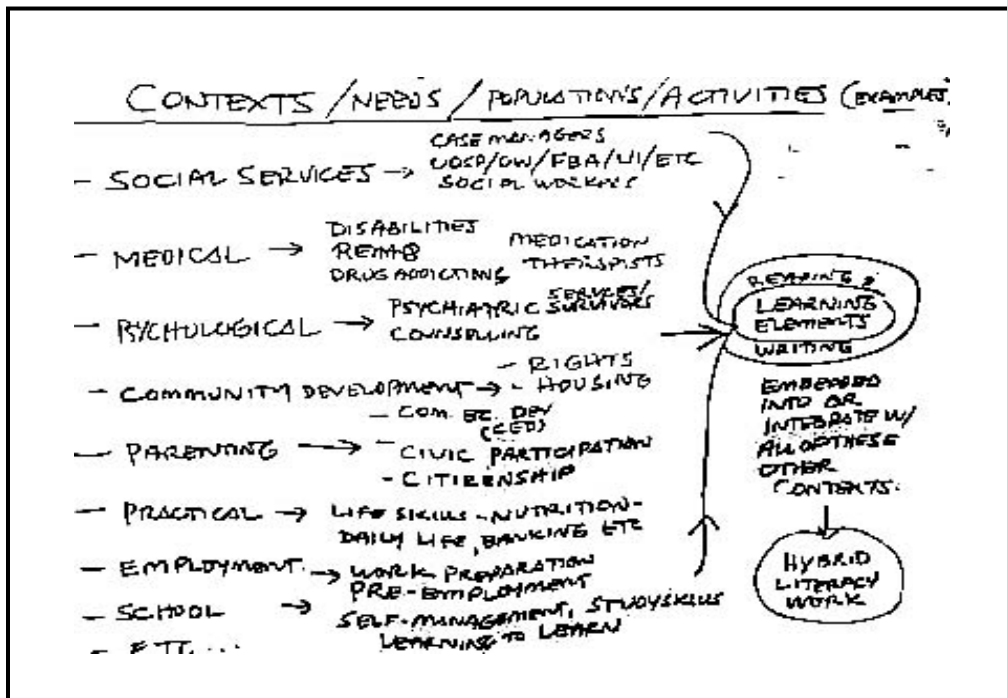 CONTEXTS/NEEDS/POPULATIONS/ACTIVITIES (EXAMPLES)
CASE MANAGERS
- SOCIAL SERVICES → /OW/FBA/UI/ETC
SOCIAL WORKERS
DISABILITIES
- MEDICAL → REHAB MEDICATION
DRUG ADDICTIONS THERAPISTS
- PSYCHOLOGICAL → PSYCHIATRIC SERVICES/SURVIVORS
COUNSELLING
- RIGHTS
- COMMUNITY DEVELOPMENT → - HOUSING
- COM. EC. DEV
(CED)
- PARENTING → - CIVIC PARTICIPATION
- CITIZENSHIP
- PRACTICAL → LIFE SKILLS - NUTRITION -
DAILY LIFE, BANKING ETC
- EMPLOYMENT → WORK PREPARATION
PRE-EMPLOYMENT
- SCHOOL → SELF-MANAGEMENT, STUDY SKILLS
LEARNING TO LEARN
- ETC...
READING &
LEARNING
ELEMENTS
WRITING
EMBEDDED
INTO OR
INTEGRATE W/
ALL OF THESE
OTHER
CONTEXTS.
HYBRID
LITERACY
WORK